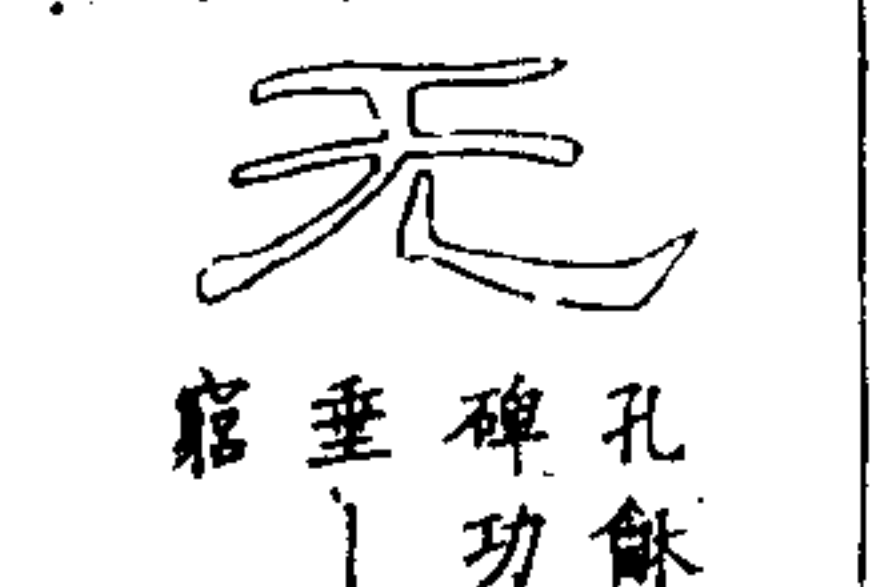 无
孔龢
碑功
垂丨
窮